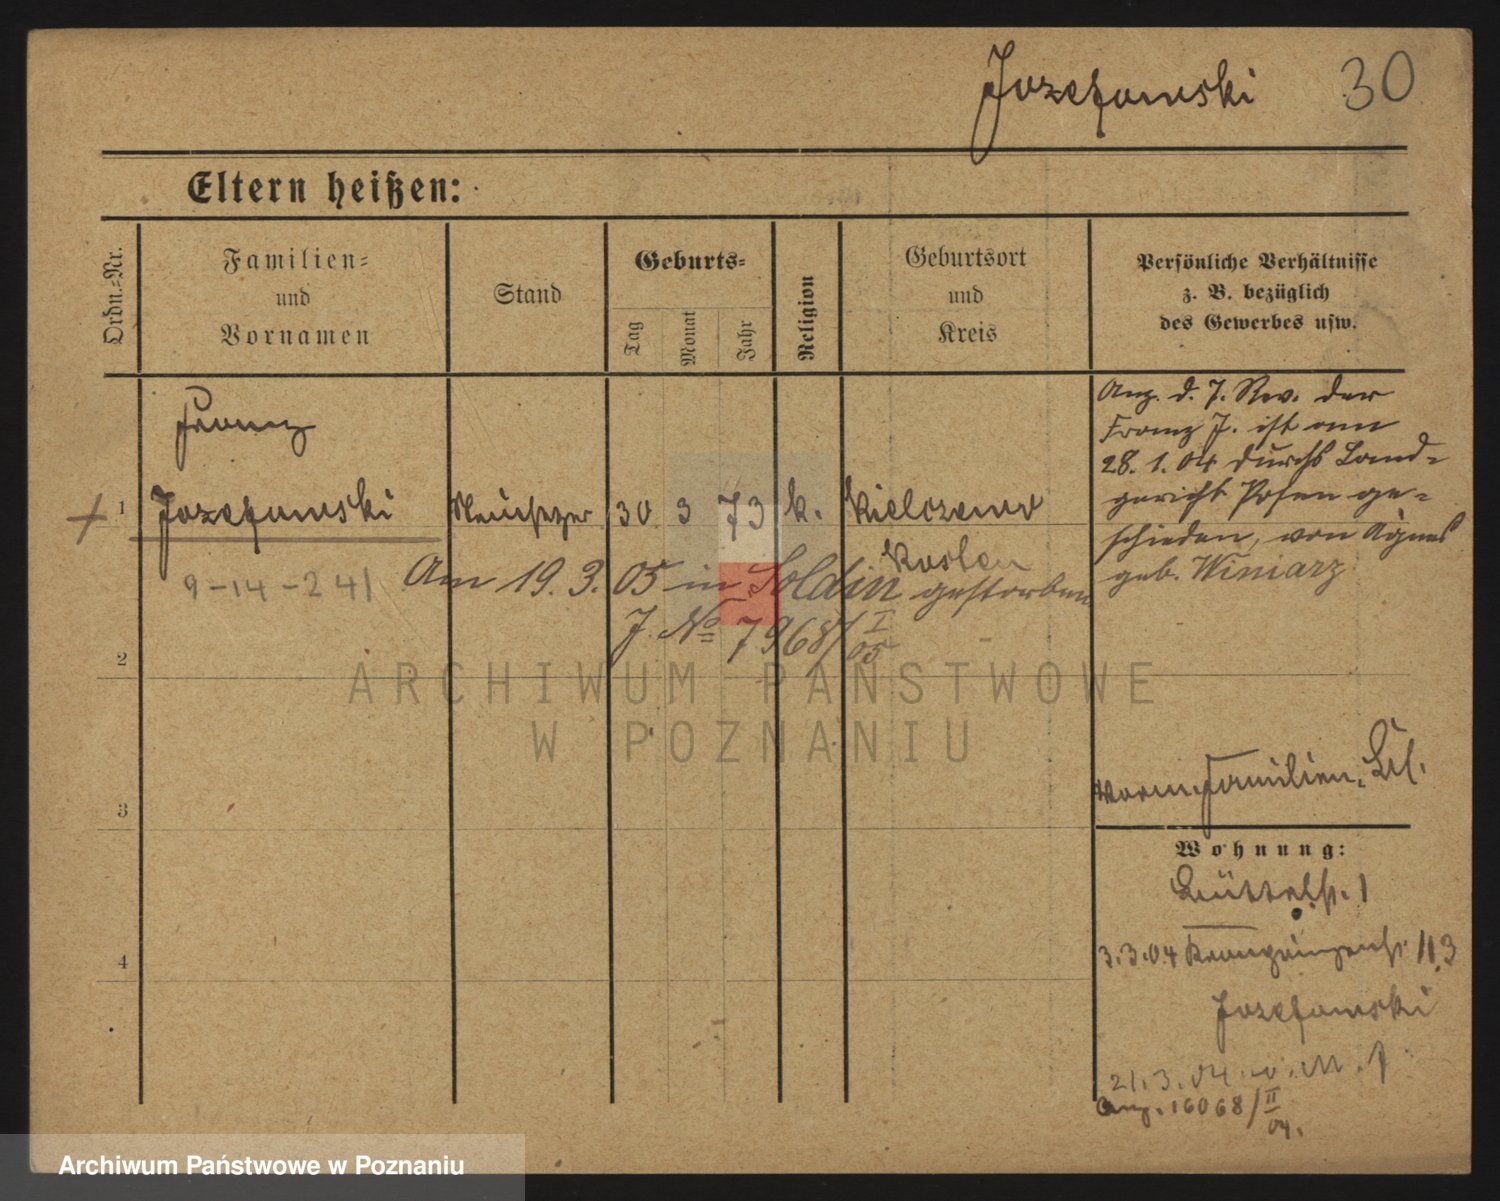 Jozefowski 30
Eltern heißen:
Ordn.-Nr.
Familien-
und
Vornamen
Stand
Geburts-
Tag
Monat
Jahr
Religion
Geburtsort
und
Kreis
Persönliche Verhältnisse
z. B. bezüglich
des Gewerbes usw.
Franz
1 Jozefowski 30 3 73 k.
Kosten
9-14-241
Am 19. 3. 05 in Soldin gestorben
J. No 7968/I 05
2
3
4
Anz. d. 7. Rev. der
Franz J. ist am
28. 1. 04 durchs Land-
gericht Posen ge-
schieden, von Agnes
geb. Winiarz
Familien
Wohnung:
1
3.3.04
Jozefowski
21.3.04
Anz. 16068/II 04.
ARCHIWUM PAŃSTWOWE
W POZNANIU
Archiwum Państwowe w Poznaniu